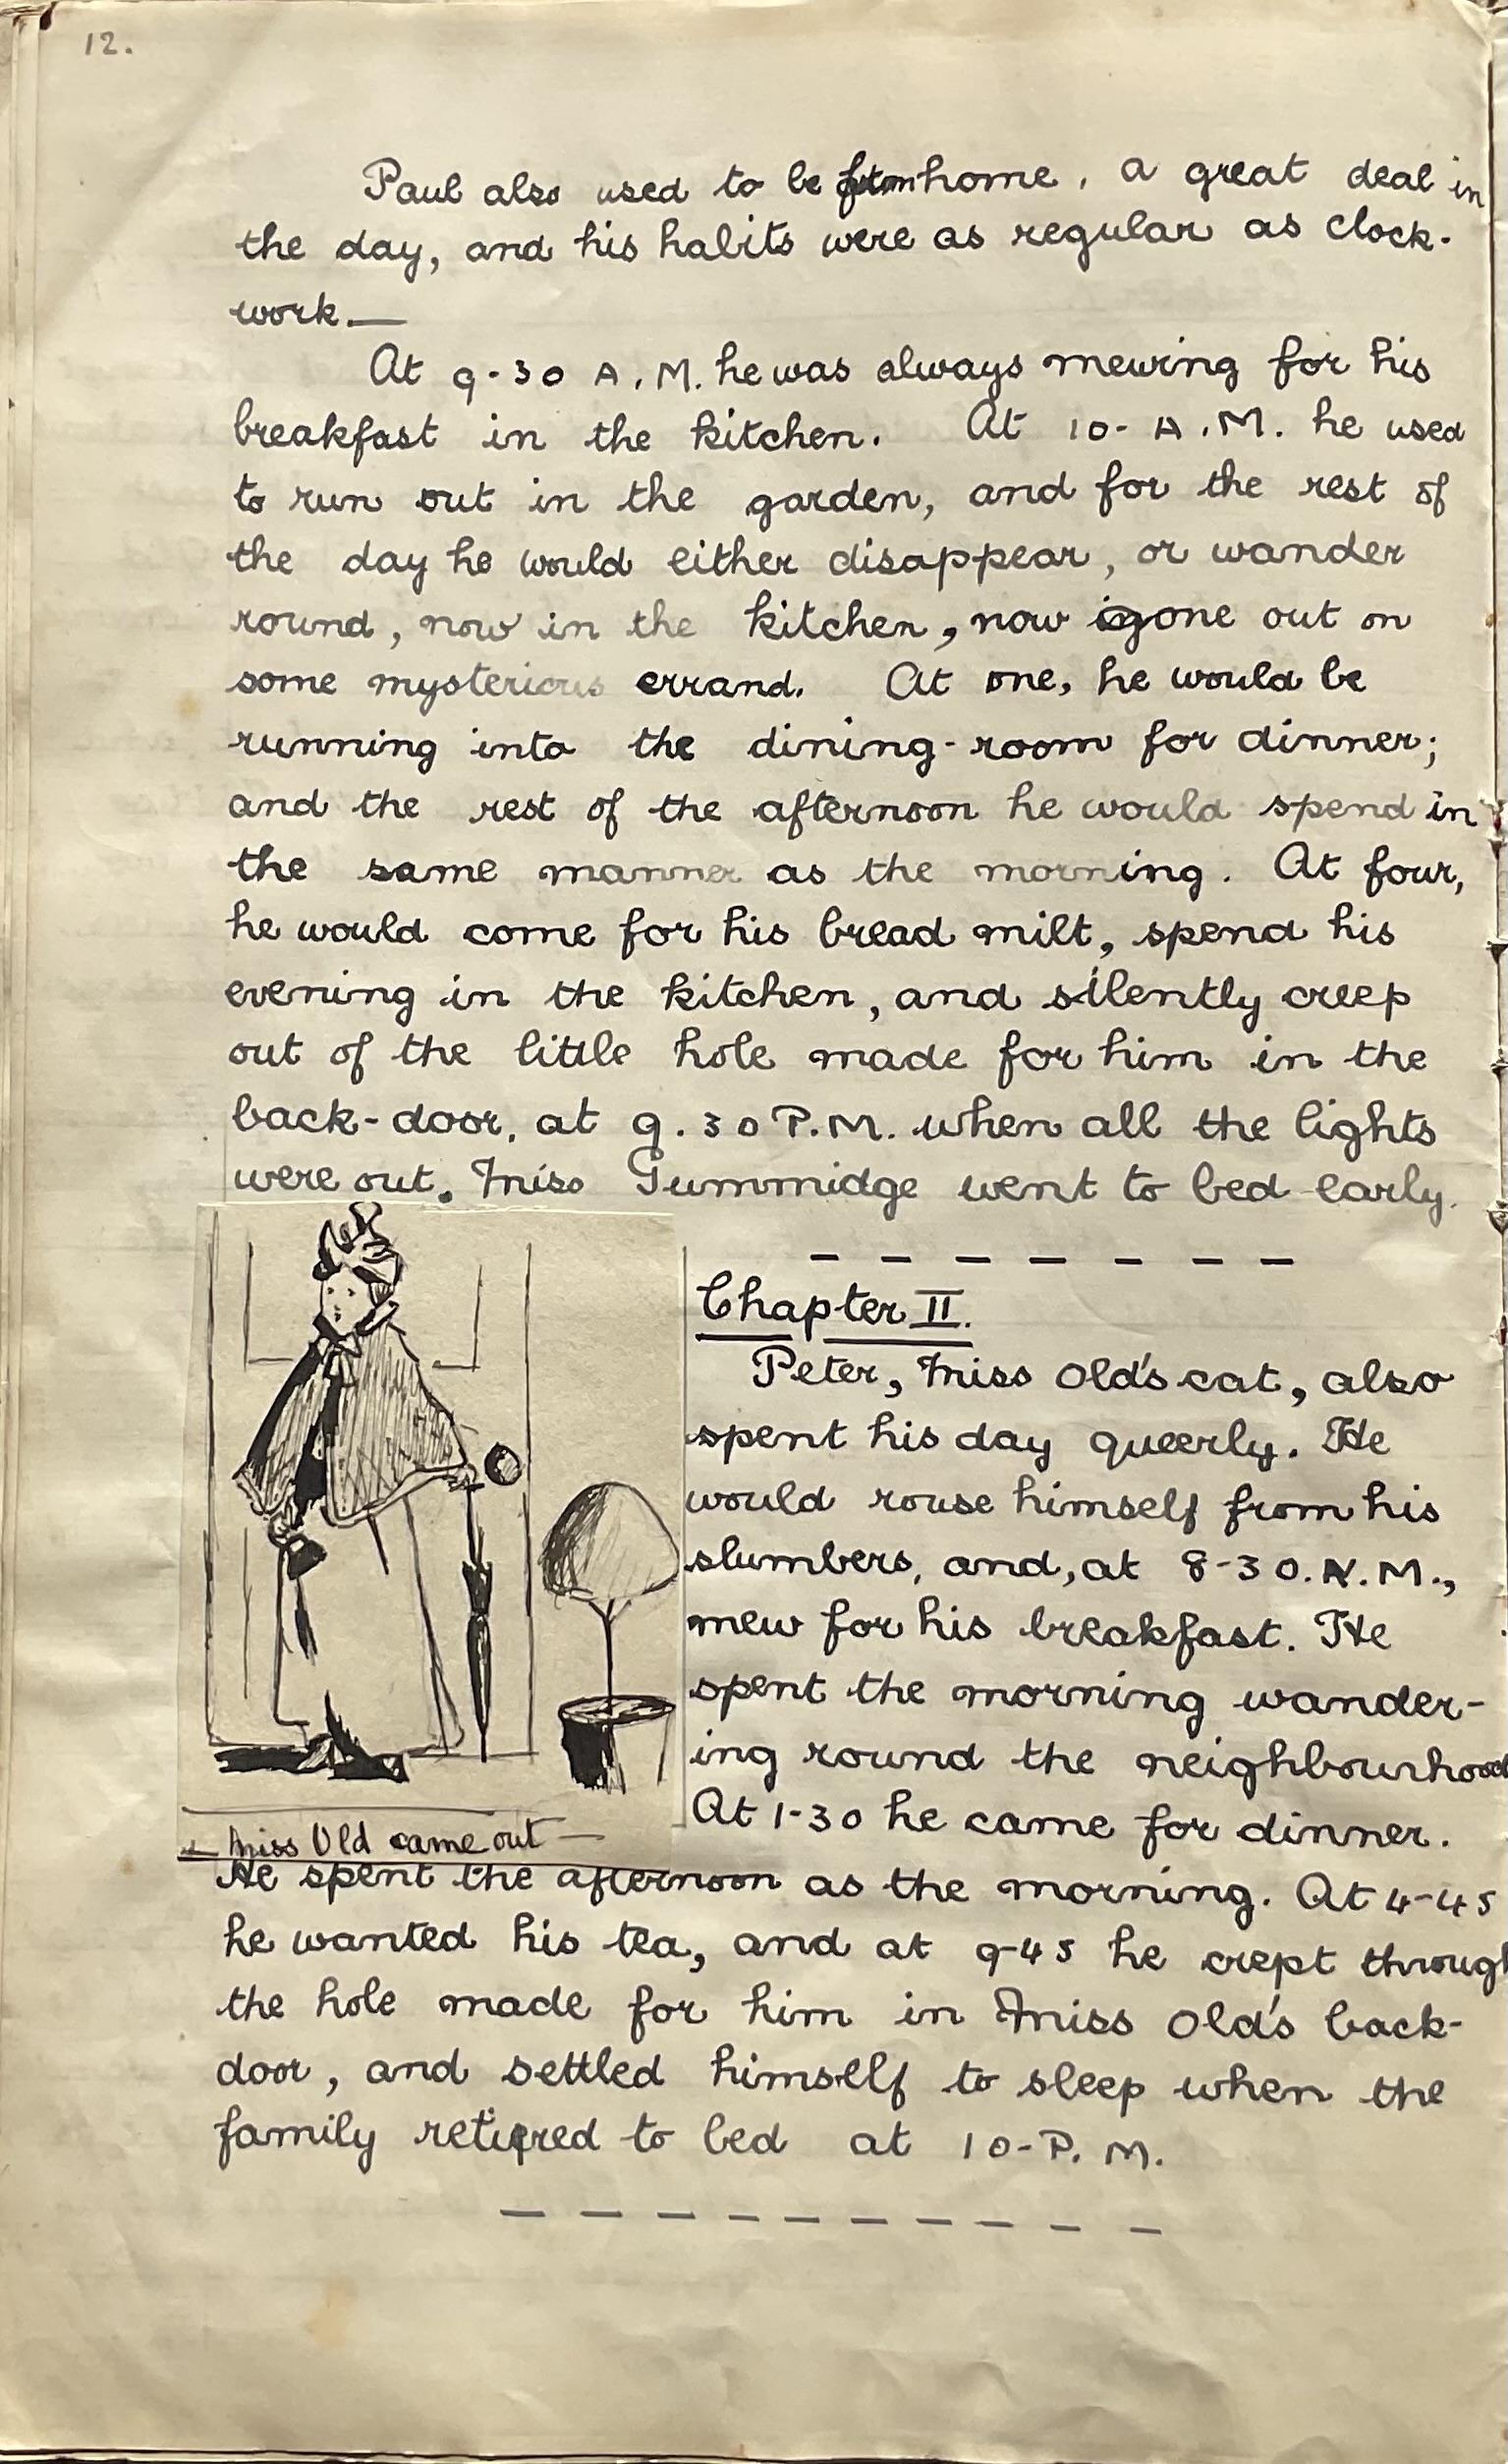 12.
Paul also used to be from home, a great deal in
the day, and his habits were as regular as clock-
work.—
At 9-30 A.M. he was always mewing for his
breakfast in the kitchen. At 10- A.M. he used
to run out in the garden, and for the rest of
the day he would either disappear, or wander
round, now in the kitchen, now gone out on
some mysterious errand. At one, he would be
running into the dining-room for dinner;
and the rest of the afternoon he would spend in
the same manner as the morning. At four,
he would come for his bread milt, spend his
evening in the kitchen, and silently creep
out of the little hole made for him in the
back-door, at 9.30 P.M. when all the lights
were out. Miss Gummidge went to bed early.
Chapter II.
Peter, Miss Old's cat, also
spent his day queerly. He
would rouse himself from his
slumbers, and, at 8-30.A.M.,
mew for his breakfast. He
spent the morning wander-
ing round the neighbourhood
At 1-30 he came for dinner.
— Miss Old came out —
He spent the afternoon as the morning. At 4-45
he wanted his tea, and at 9-45 he crept through
the hole made for him in Miss Old's back-
door, and settled himself to sleep when the
family retired to bed at 10-P.M.